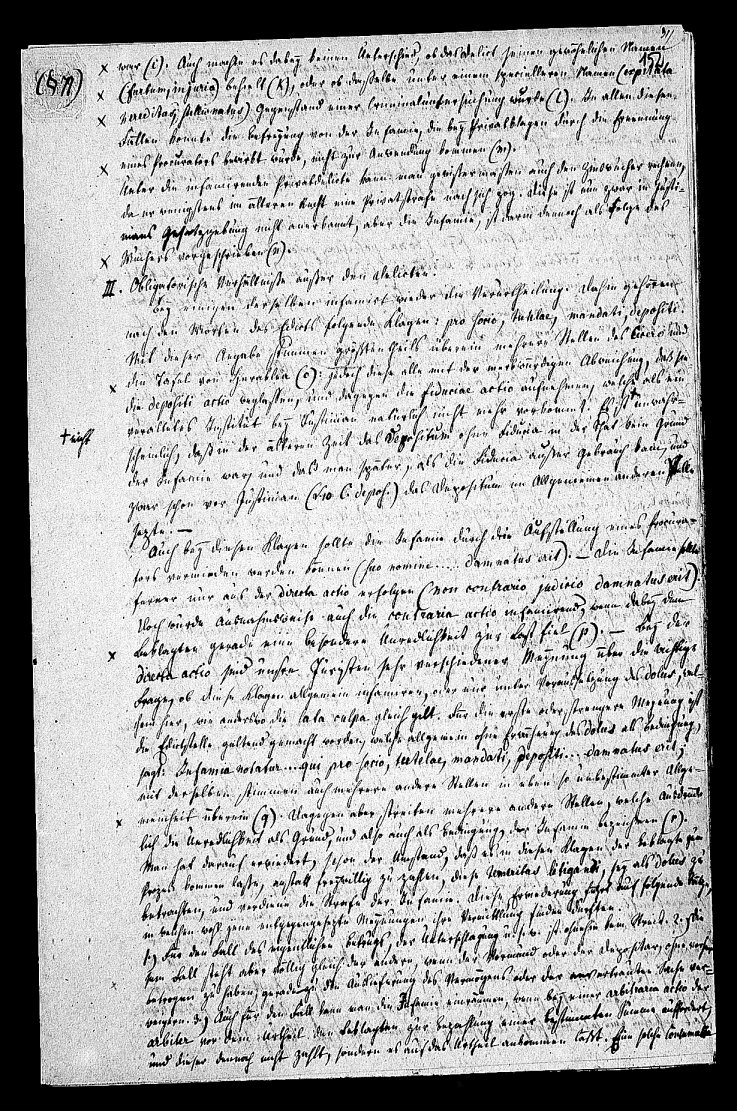 31)
15
(§ 77)
war (i). Auch machte es dabey keinen Unterschied, ob das Delict seinen gewöhnlichen Namen
(furtum, injuria) behielt (k), oder ob dasselbe unter einem specielleren Namen (expilata
hereditas, stellionatus) Gegenstand einer Criminaluntersuchung wurde (l). In allen diesen
Fällen konnte die Befreyung von der Infamie, die bey Privatklagen durch die Ernennung
eines Procurators bewirkt wurde, nicht zur Anwendung kommen (m).
Unter die infamirenden Privatdelicte kann man gewissermaßen auch den Zinswucher rechnen,
da er wenigstens im älteren Recht eine Privatstrafe nach sich zog. Diese ist nun zwar in Justi-
nians Gesetzgebung nicht anerkannt, aber die Infamie ist darin dennoch als Folge des
Wuchers vorgeschrieben (n).
III. Obligatorische Verhältnisse außer den Delicten.
Bey einigen derselben infamirt wieder die Verurtheilung. Dahin gehören
nach den Worten des Edicts folgende Klagen: pro socio, tutelae, mandati, depositi.
Mit dieser Angabe stimmen größtentheils überein mehrere Stellen des Cicero und
die Tafel von Heraklea (o): jedoch diese alle mit der merkwürdigen Abweichung, daß sie
die depositi actio weglassen, und dagegen die fiduciae actio aufnehmen, welche als ein
veraltetes Institut bey Justinian natürlich nicht mehr vorkommt. Es ist + unwahr-
+ nicht
scheinlich, daß in der älteren Zeit das Depositum ohne Fiducia in der That kein Grund
der Infamie war, und daß man später, als die Fiducia außer Gebrauch kam, und
zwar schon vor Justinian (L. 10 C. depos.) das Depositum im Allgemeinen an deren Stelle
setzte. —
Auch bey diesen Klagen sollte die Infamie durch die Aufstellung eines Procura-
tors vermieden werden können (suo nomine .... damnatus erit). — Die Infamie sollte
ferner nur aus der directa actio erfolgen (non contrario judicio damnatus erit).
Doch wurde ausnahmsweise auch die contraria actio infamirend, wenn dabey dem
Beklagten gerade eine besondere Unredlichkeit zur Last fiel (p). — Bey der
directa actio sind unsre Juristen sehr verschiedener Meynung über die wichtige
Frage, ob diese Klagen allgemein infamiren, oder nur unter Voraussetzung des dolus, wel-
chem hier, wie anderwärts die lata culpa gleich gilt. Für die erste oder strengere Meynung ist
die Edictstelle geltend gemacht worden, welche allgemein ohne Erwähnung des dolus als Bedingung,
sagt: Infamia notatur ... qui pro socio, tutelae, mandati, depositi ... damnatus erit;
mit derselben stimmen auch mehrere andere Stellen in eben so unbestimmter Allge-
meinheit überein (q). Dagegen aber streiten mehrere andere Stellen, welche ausdrück-
lich die Unredlichkeit als Grund, und also auch als Bedingung, der Infamie bezeichnen (r).
Man hat darauf erwiedert, schon der Umstand, daß es in diesen Klagen der Beklagte zum
Prozeß kommen lasse, anstatt freywillig zu zahlen, diese temeritas litigandi, sey als dolus zu
betrachten, und verdiene die Strafe der Infamie. Diese Erwiederung führt auf folgende Sätze,
in welchen wohl jene entgegengesetzte Meynungen ihre Vermittlung finden dürften.
1.) Für den Fall des eigentlichen Betrugs, der Unterschlagung u. s. w. ist ohnehin kein Streit. 2.) Die-
sem Fall steht aber völlig gleich der andere, wenn der Vormund oder der Depositar, ohne vorher
betrogen zu haben, geradezu die Auslieferung des Vermögens oder der anvertrauten Sache ver-
weigern. 3.) Auch für den Fall kann man die Infamie einräumen, wenn bey einer arbitraria actio der
arbiter vor dem Urtheil den Beklagten zur Bezahlung einer bestimmten Summe auffordert,
und dieser dennoch nicht zahlt, sondern es auf das Urtheil ankommen läßt. Eine solche Contumacia